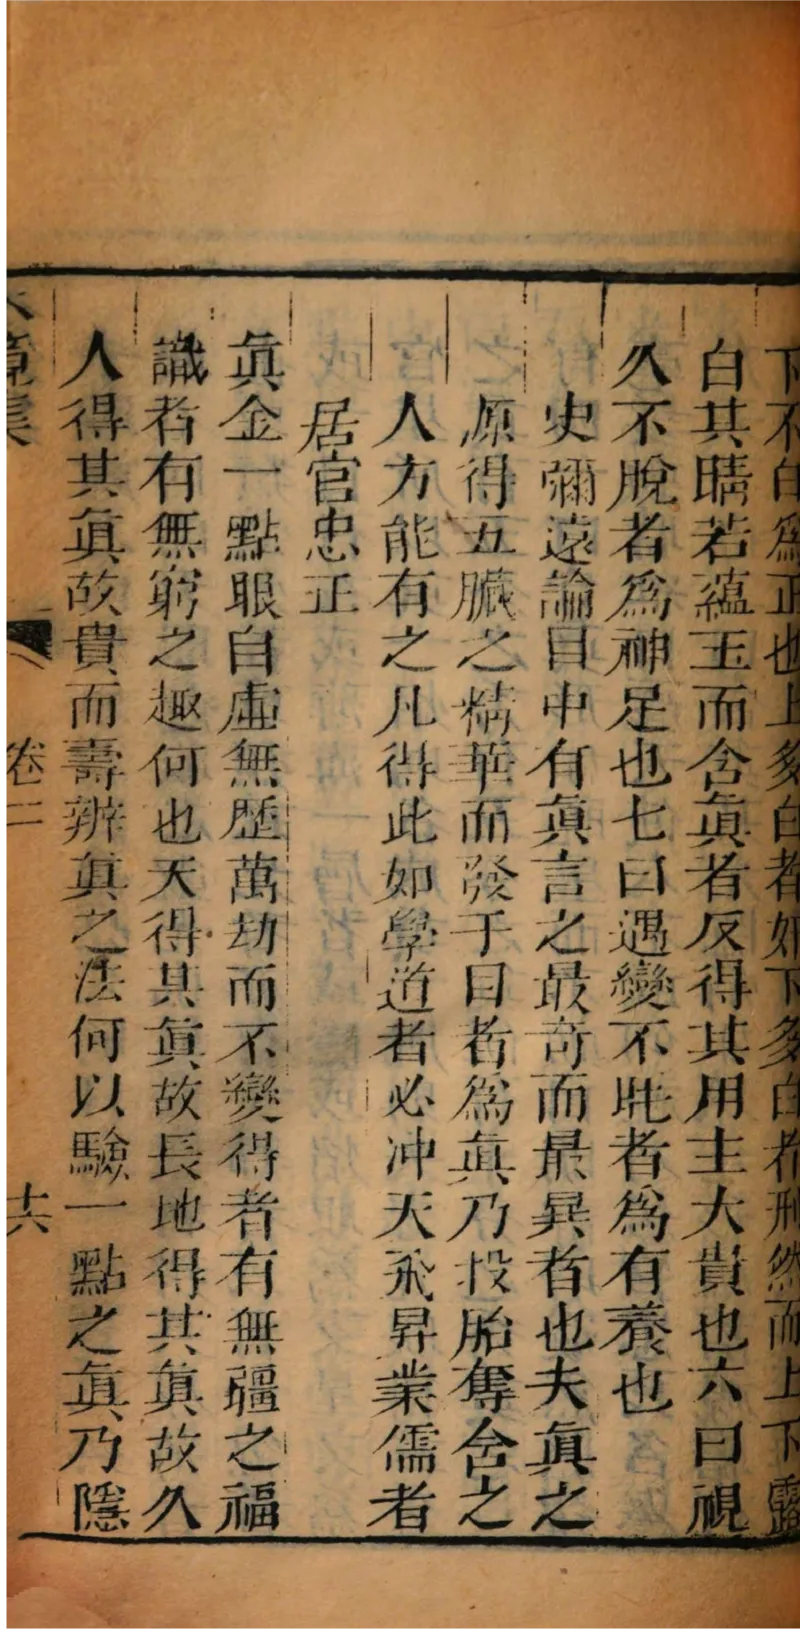 下不白為正也上多白者奸下多白者刑然而上下露
白其睛若蘊玉而含眞者反得其用主大貴也六曰視
久不脫者為神足也七曰遇變不眊者為有養也
史彌遠論目中有眞言之最奇而最異者也夫眞之
原得五臟之精華而發于目者為眞乃投胎奪舍之
人方能有之凡得此如學道者必冲天飛昇業儒者
居官忠正
眞金一點眼自虛無歷萬劫而不變得者有無疆之福
識者有無窮之趣何也天得其眞故長地得其眞故久
人得其眞故貴而壽辦眞之法何以驗一點之眞乃隱
鏡集 卷二 十六